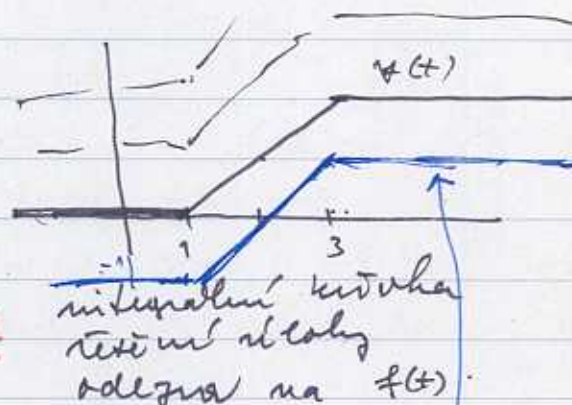 y(t)
1 3
-1
integrální křivka
řešení úlohy
odezva na f(t)